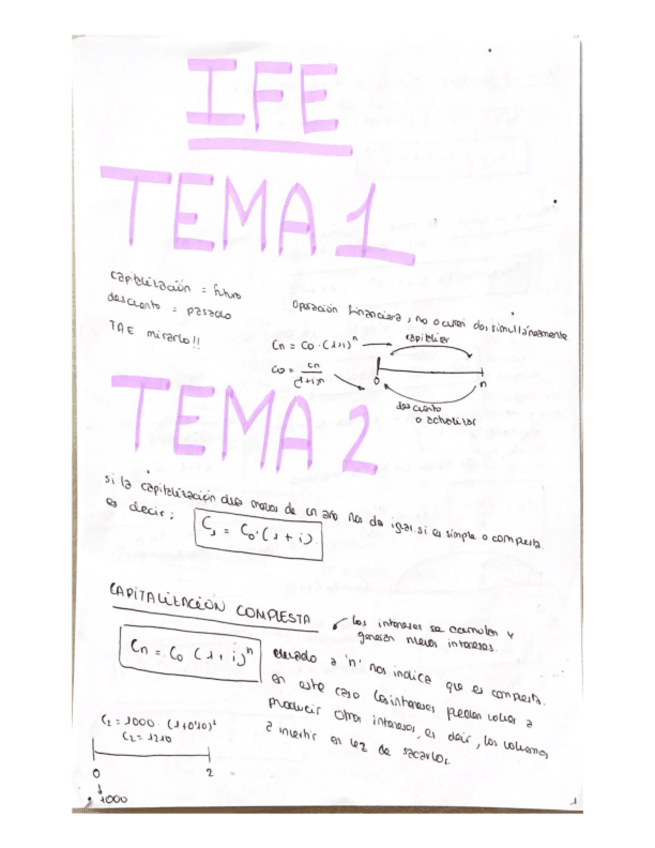 IFE
TEMA 1
capitalización = futuro
descuento = pasado
TAE mirarlo!!
Operación financiera, no ocurren dos simultáneamente
Cn = Co · (1+i)^n
capitalizar
Co = Cn / (1+i)^n
0
n
descuento
o actualizar
TEMA 2
si la capitalización dura menos de un año nos da igual si es simple o compuesta
es decir: C1 = Co · (1 + i)
CAPITALIZACIÓN COMPUESTA
los intereses se acumulan y
generan nuevos intereses.
Cn = Co (1 + i)^n
elevado a 'n' nos indica que es compuesta.
en este caso los intereses pueden volver a
producir otros intereses, es decir, los volvemos
a invertir en vez de sacarlos.
C2 = 1000 · (1+0'10)²
C2 = 1210
0
2
1000
1